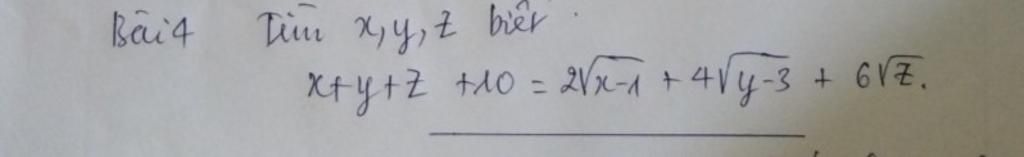 Bài 4 Tìm x, y, z biết
x+y+z +10 = 2√x-1 + 4√y-3 + 6√z.